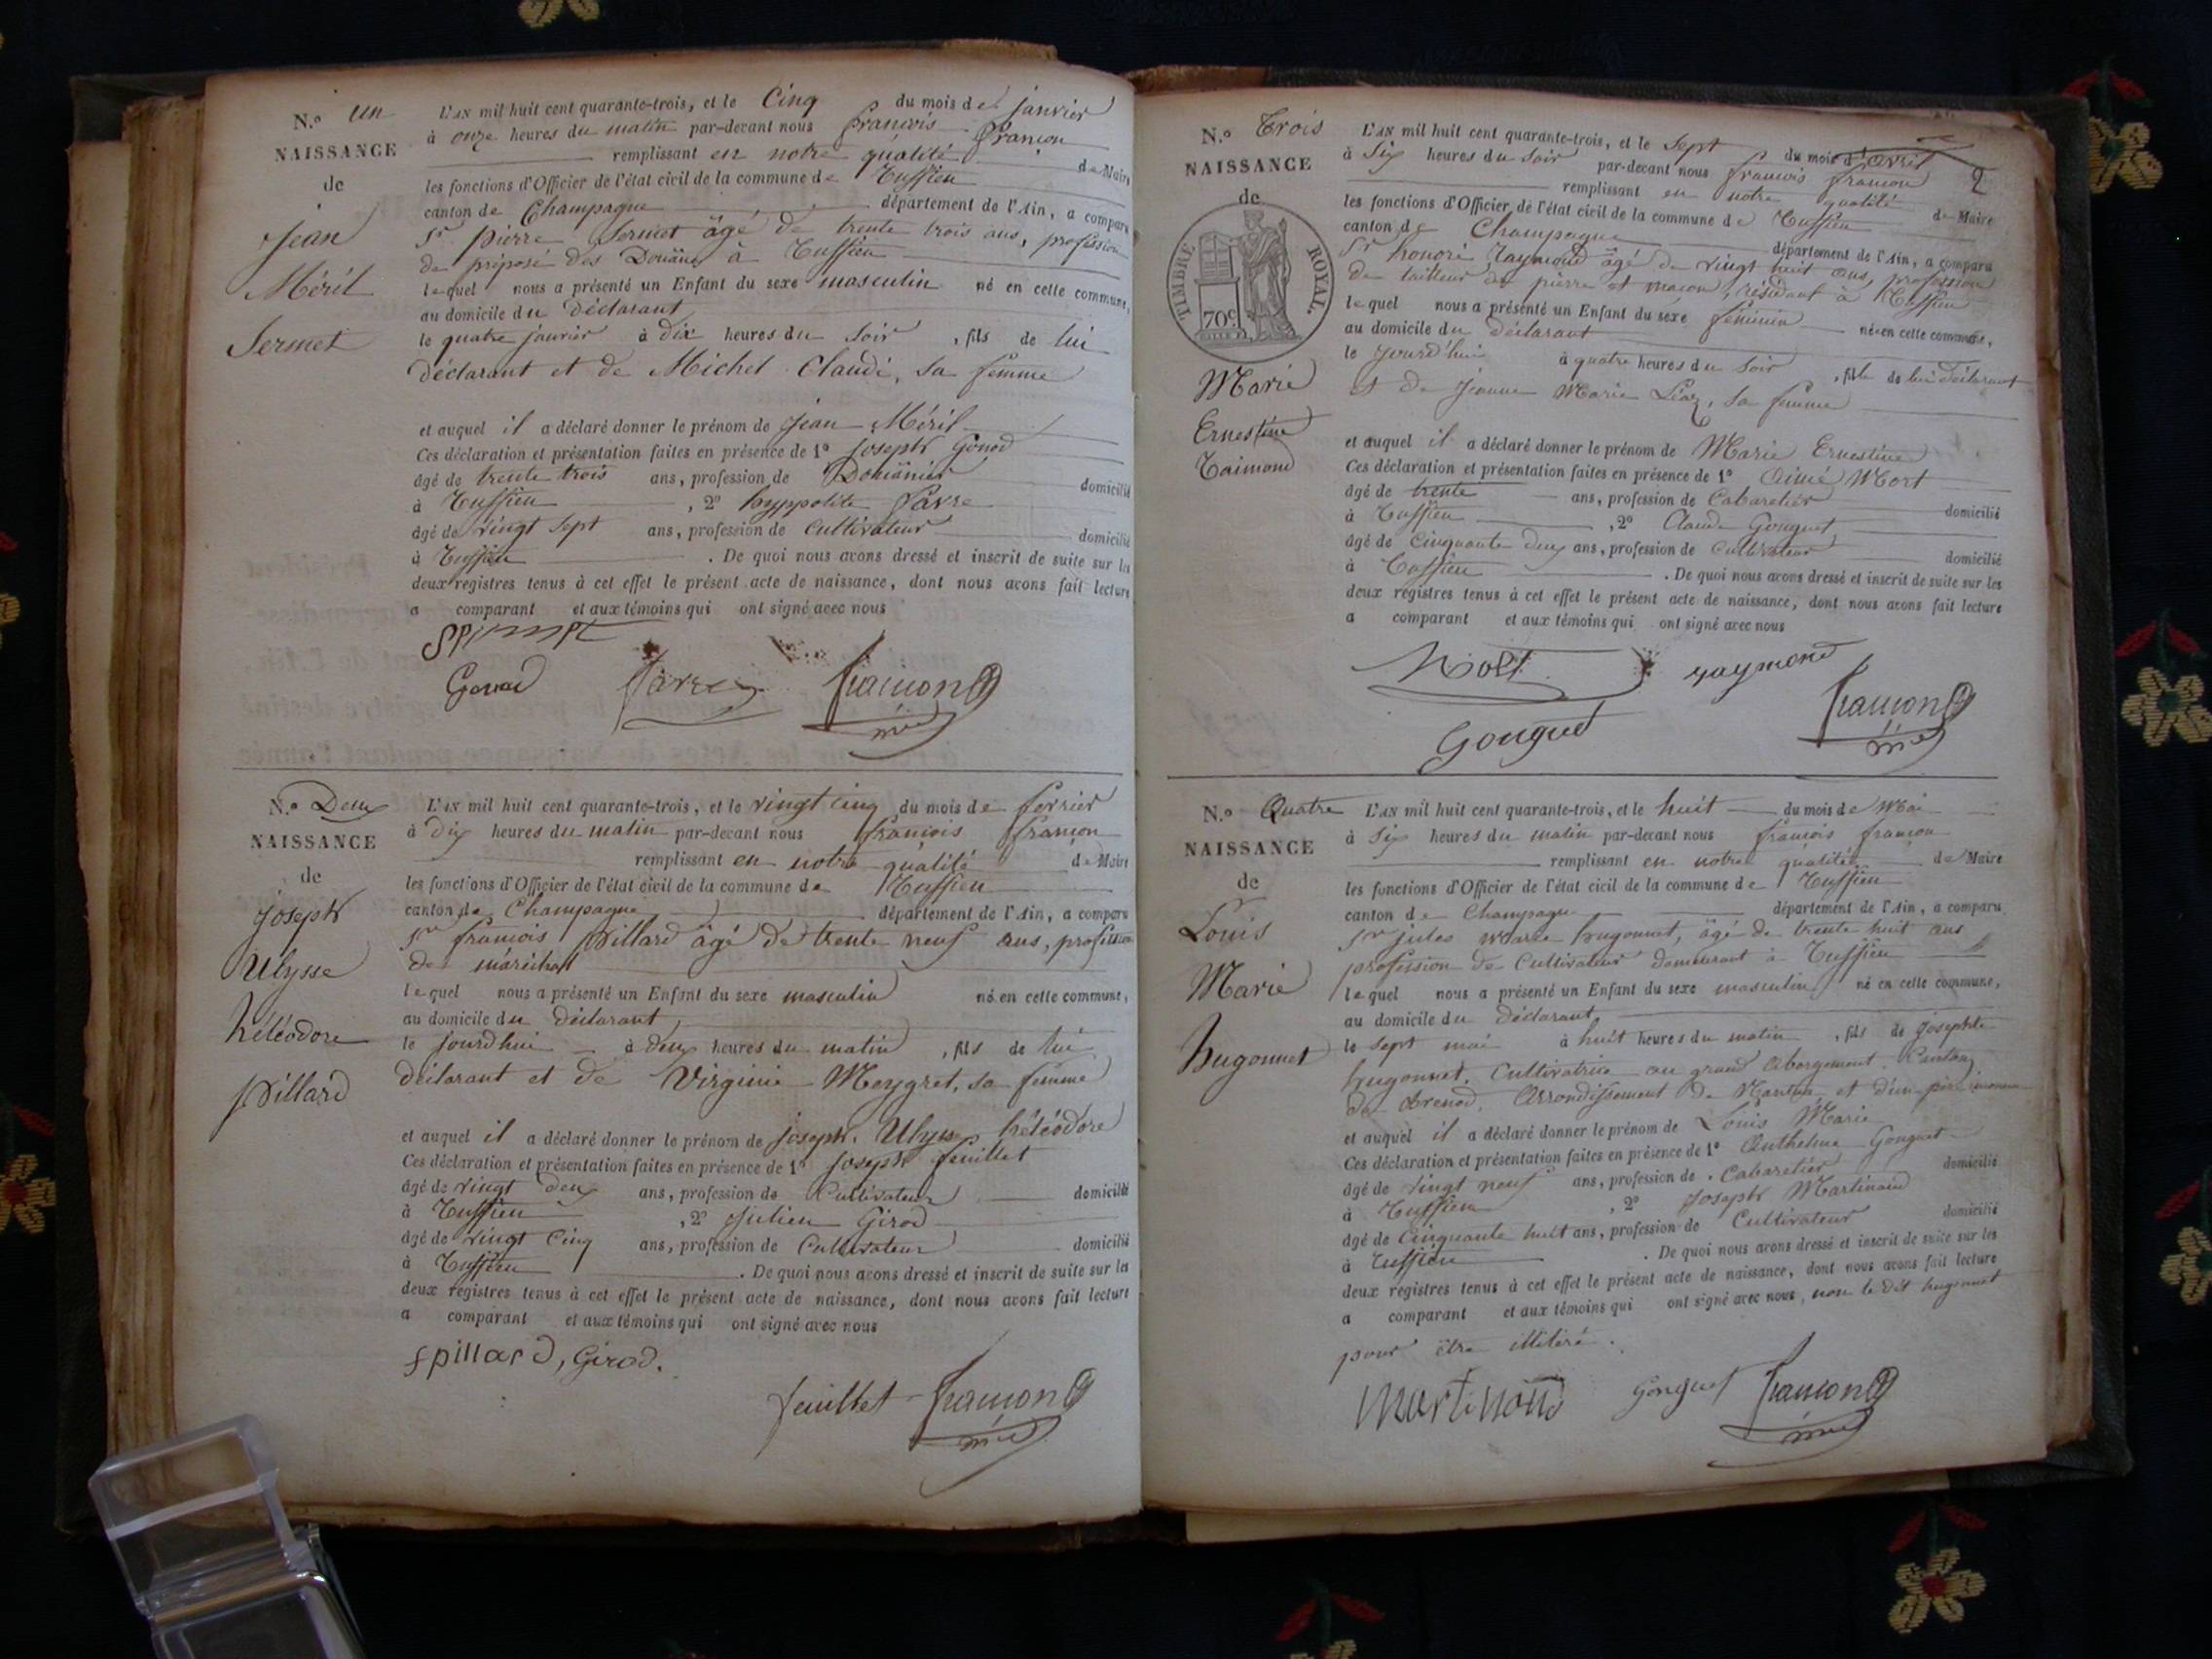 N.º un
NAISSANCE
de
Jean
Méril
Sermet
L'AN mil huit cent quarante-trois, et le Cinq du mois de janvier
à onze heures du matin par-devant nous françois françon
remplissant en notre qualité de Maire
les fonctions d'Officier de l'état civil de la commune de Tuffieu
canton de Champagne département de l'Ain, a comparu
Sr pierre Sermet âgé de trente trois ans, profession
de préposé des Douänes à Tuffieu
lequel nous a présenté un Enfant du sexe masculin né en cette commune,
au domicile du déclarant
le quatre janvier à dix heures du soir, fils de lui
déclarant et de Michel Claudi, sa femme
et auquel il a déclaré donner le prénom de Jean Méril
Ces déclaration et présentation faites en présence de 1º Joseph Gonod
âgé de trente trois ans, profession de Douänier domicilié
à Tuffieu, 2º hyppolite favre
âgé de vingt sept ans, profession de cultivateur domicilié
à Tuffieu. De quoi nous avons dressé et inscrit de suite sur les
deux registres tenus à cet effet le présent acte de naissance, dont nous avons fait lecture
a comparant et aux témoins qui ont signé avec nous
Gonod favre françon
N.º Deux
NAISSANCE
de
Joseph
Ulysse
héléodore
Pillard
L'AN mil huit cent quarante-trois, et le vingt cinq du mois de fevrier
à dix heures du matin par-devant nous françois françon
remplissant en notre qualité de Maire
les fonctions d'Officier de l'état civil de la commune de Tuffieu
canton de Champagne département de l'Ain, a comparu
Sr françois Pillard âgé de trente neuf ans, profession
de maréchal
lequel nous a présenté un Enfant du sexe masculin né en cette commune,
au domicile du déclarant
le jourd'hui à deux heures du matin, fils de lui
déclarant et de Virginie Meygret, sa femme
et auquel il a déclaré donner le prénom de joseph. Ulyse héléodore
Ces déclaration et présentation faites en présence de 1º joseph feuillet
âgé de vingt deux ans, profession de Cultivateur domicilié
à Tuffieu, 2º Julien Girod
âgé de vingt Cinq ans, profession de Cultivateur domicilié
à Tuffieu. De quoi nous avons dressé et inscrit de suite sur les
deux registres tenus à cet effet le présent acte de naissance, dont nous avons fait lecture
a comparant et aux témoins qui ont signé avec nous
fpillard, Girod.
feuillet françon
2
N.º Trois
NAISSANCE
de
TIMBRE ROYAL.
70c
Marie
Ernestine
Raimond
L'AN mil huit cent quarante-trois, et le sept du mois d'avril
à Six heures du soir par-devant nous françois françon
remplissant en notre qualité de Maire
les fonctions d'Officier de l'état civil de la commune de Tuffieu
canton de Champagne département de l'Ain, a comparu
Sr honoré Raymond âgé de vingt huit ans, profession
de tailleur de pierre et maçon, résidant à Tuffieu
lequel nous a présenté un Enfant du sexe féminin né en cette commune,
au domicile du déclarant
le jourd'hui à quatre heures du soir, fille de lui déclarant
et de jeanne Marie Liaz, sa femme
et auquel il a déclaré donner le prénom de Marie Ernestine
Ces déclaration et présentation faites en présence de 1º Aimé Mort
âgé de trente ans, profession de Cabaretier domicilié
à Tuffieu, 2º Claude Gonguet
âgé de Cinquante deux ans, profession de cultivateur domicilié
à Tuffieu. De quoi nous avons dressé et inscrit de suite sur les
deux registres tenus à cet effet le présent acte de naissance, dont nous avons fait lecture
a comparant et aux témoins qui ont signé avec nous
Mort raymond
Gonguet françon
N.º Quatre
NAISSANCE
de
Louis
Marie
hugonnet
L'AN mil huit cent quarante-trois, et le huit du mois de Mai
à Six heures du matin par-devant nous françois françon
remplissant en notre qualité de Maire
les fonctions d'Officier de l'état civil de la commune de Tuffieu
canton de Champagne département de l'Ain, a comparu
Sr jules marie hugonnet, âgé de trente huit ans
profession de Cultivateur demeurant à Tuffieu
lequel nous a présenté un Enfant du sexe masculin né en cette commune,
au domicile du déclarant
le sept mai à huit heures du matin, fils de josephte
hugonnet, Cultivatrice au grand Abergement Canton
de Brenod, Arrondissement de Nantua et d'un père inconnu
et auquel il a déclaré donner le prénom de Louis Marie
Ces déclaration et présentation faites en présence de 1º Anthelme Gonguet
âgé de vingt neuf ans, profession de Cabaretier domicilié
à Tuffieu, 2º Joseph Martinand
âgé de Cinquante huit ans, profession de Cultivateur domicilié
à Tuffieu. De quoi nous avons dressé et inscrit de suite sur les
deux registres tenus à cet effet le présent acte de naissance, dont nous avons fait lecture
a comparant et aux témoins qui ont signé avec nous, non le dit hugonnet
pour être illitéré.
Martinand Gonguet françon